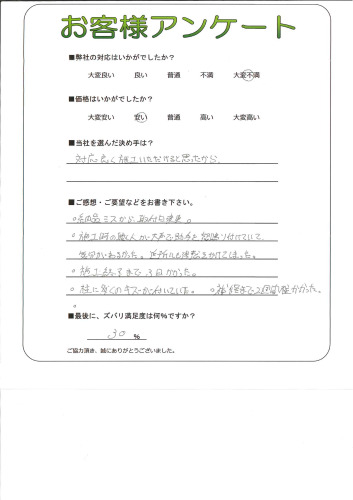 お客様アンケート
■弊社の対応はいかがでしたか?
大変良い 良い 普通 不満 大変不満
■価格はいかがでしたか?
大変安い 安い 普通 高い 大変高い
■当社を選んだ決め手は?
対応良く施工いただけると思ったから。
■ご感想・ご要望などをお書き下さい。
○納品ミスから取付日変更。
○施工時の職人が大声で助手を怒鳴り付けていて、
気分がわるかった。近所にも迷惑をかけてしまった。
○施工終了まで3回かかった。
○柱に多くのキズが付いていた。 ○補修まで2週間程かかった。
■最後に、ズバリ満足度は何%ですか?
30 %
ご協力頂き、誠にありがとうございました。